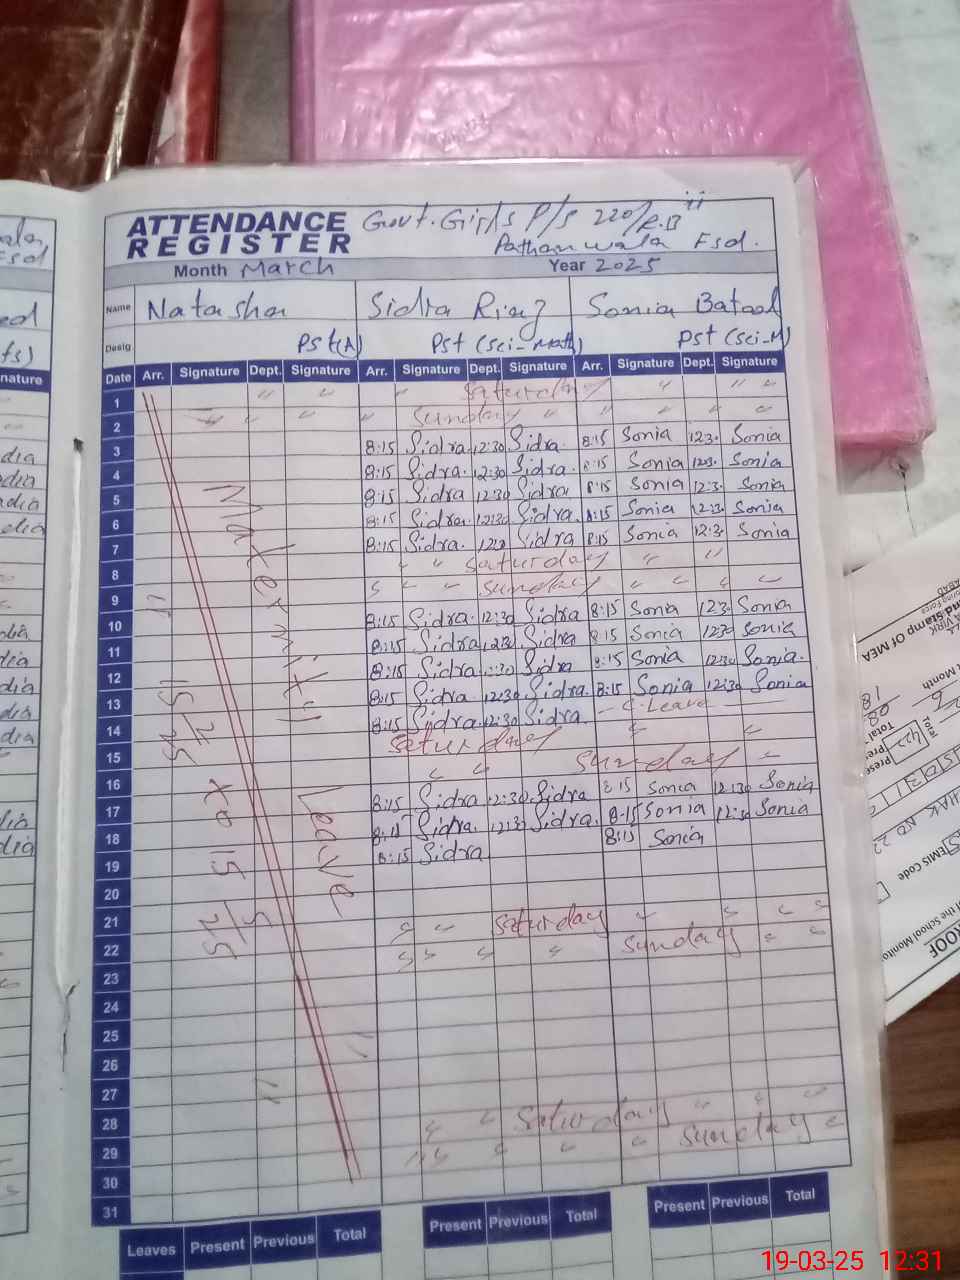 ATTENDANCE REGISTER
Govt. Girls P/S 220/R.B ii
Pathan wala Fsd.
Month March Year 2025
Name Natasha Sidra Riaz Sonia Batool
Desig. Pst(A) Pst (Sci_Math) Pst (Sci_M)
Date Arr. Signature Dept. Signature Arr. Signature Dept. Signature Arr. Signature Dept. Signature
1 " " " Saturday " " "
2 " " " " Sunday " " " " "
3 8:15 Sidra 12:30 Sidra 8:15 Sonia 12:3. Sonia
4 8:15 Sidra 12:30 Sidra 8:15 Sonia 12:3. Sonia
5 8:15 Sidra 12:30 Sidra 8:15 Sonia 12:3. Sonia
6 8:15 Sidra 12:30 Sidra 8:15 Sonia 12:3. Sonia
7 8:15 Sidra 12:30 Sidra 8:15 Sonia 12:3. Sonia
8 " " Saturday " "
9 " " " Sunday " " " "
10 8:15 Sidra 12:30 Sidra 8:15 Sonia 12:3. Sonia
11 8:15 Sidra 12:30 Sidra 8:15 Sonia 12:30 Sonia
12 8:15 Sidra 12:30 Sidra 8:15 Sonia 12:30 Sonia
13 8:15 Sidra 12:30 Sidra 8:15 Sonia 12:30 Sonia
14 8:15 Sidra 12:30 Sidra C. Leave
15 Saturday " "
16 " " Sunday "
17 8:15 Sidra 12:30 Sidra 8:15 Sonia 12:30 Sonia
18 8:15 Sidra 12:30 Sidra 8:15 Sonia 12:30 Sonia
19 8:15 Sidra 8:15 Sonia
20
21
22 " " Saturday " " " "
23 " " " " Sunday " "
24
25
26
27
28
29 " " Saturday " " "
30 " " " " " Sunday "
31
Maternity Leave
15/2/25 to 15/5/25
Leaves Present Previous Total Present Previous Total Present Previous Total
nature
Stamp Of MEA
EMIS Code
19-03-25 12:31